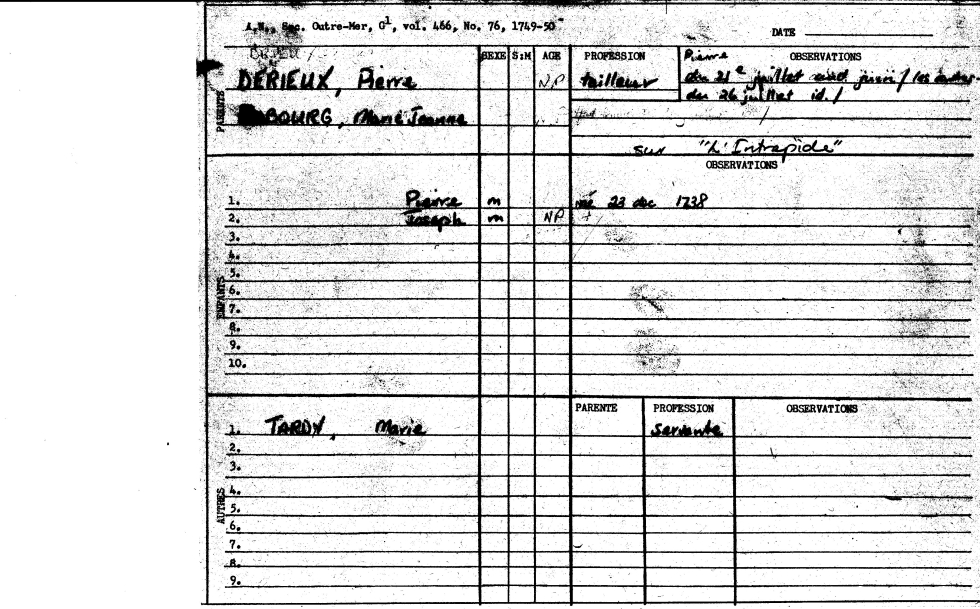 A.N., Sec. Outre-Mer, G¹, vol. 466, No. 76, 1749-50
DATE
SEXE S:M AGE PROFESSION Pierre OBSERVATIONS
PARENTS
DERIEUX, Pierre NP tailleur du 21 juillet / les autres
BOURG, Marie Jeanne du 26 juillet id. /
sur "L'Intrapide"
OBSERVATIONS
ENFANTS
1. Pierre m né 23 dec 1738
2. Joseph m NP
3.
4.
5.
6.
7.
8.
9.
10.
PARENTE PROFESSION OBSERVATIONS
AUTRES
1. TARDY, Marie servante
2.
3.
4.
5.
6.
7.
8.
9.